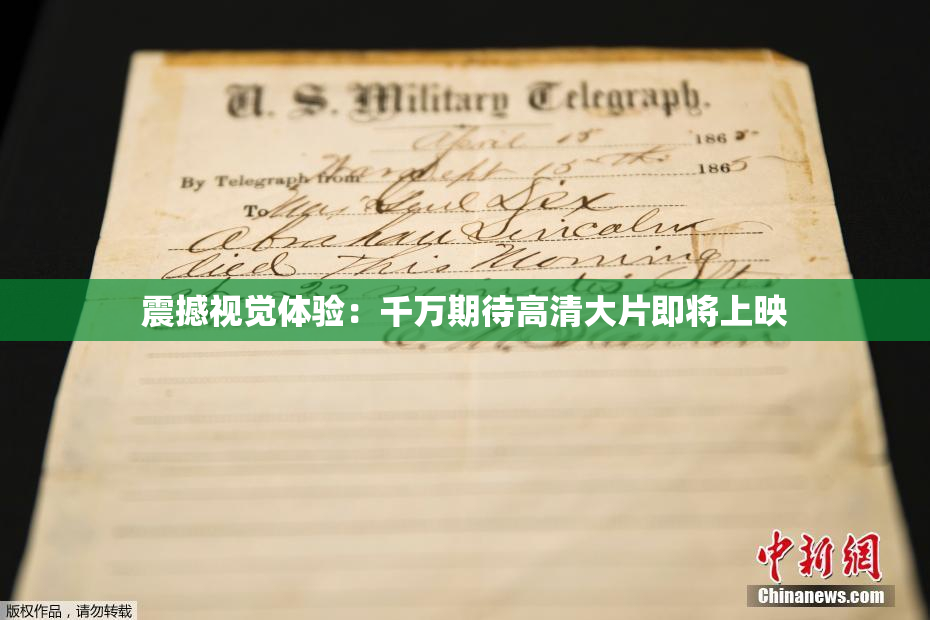 U. S. Military Telegraph.
April 15 1865
By Telegraph from War Dept 15th 1865
To Maj Genl Dix
Abraham Lincoln
died This Morning
22 minutes after
震撼视觉体验：千万期待高清大片即将上映
E. M. Stanton
中新網
Chinanews.com
版权作品，请勿转载